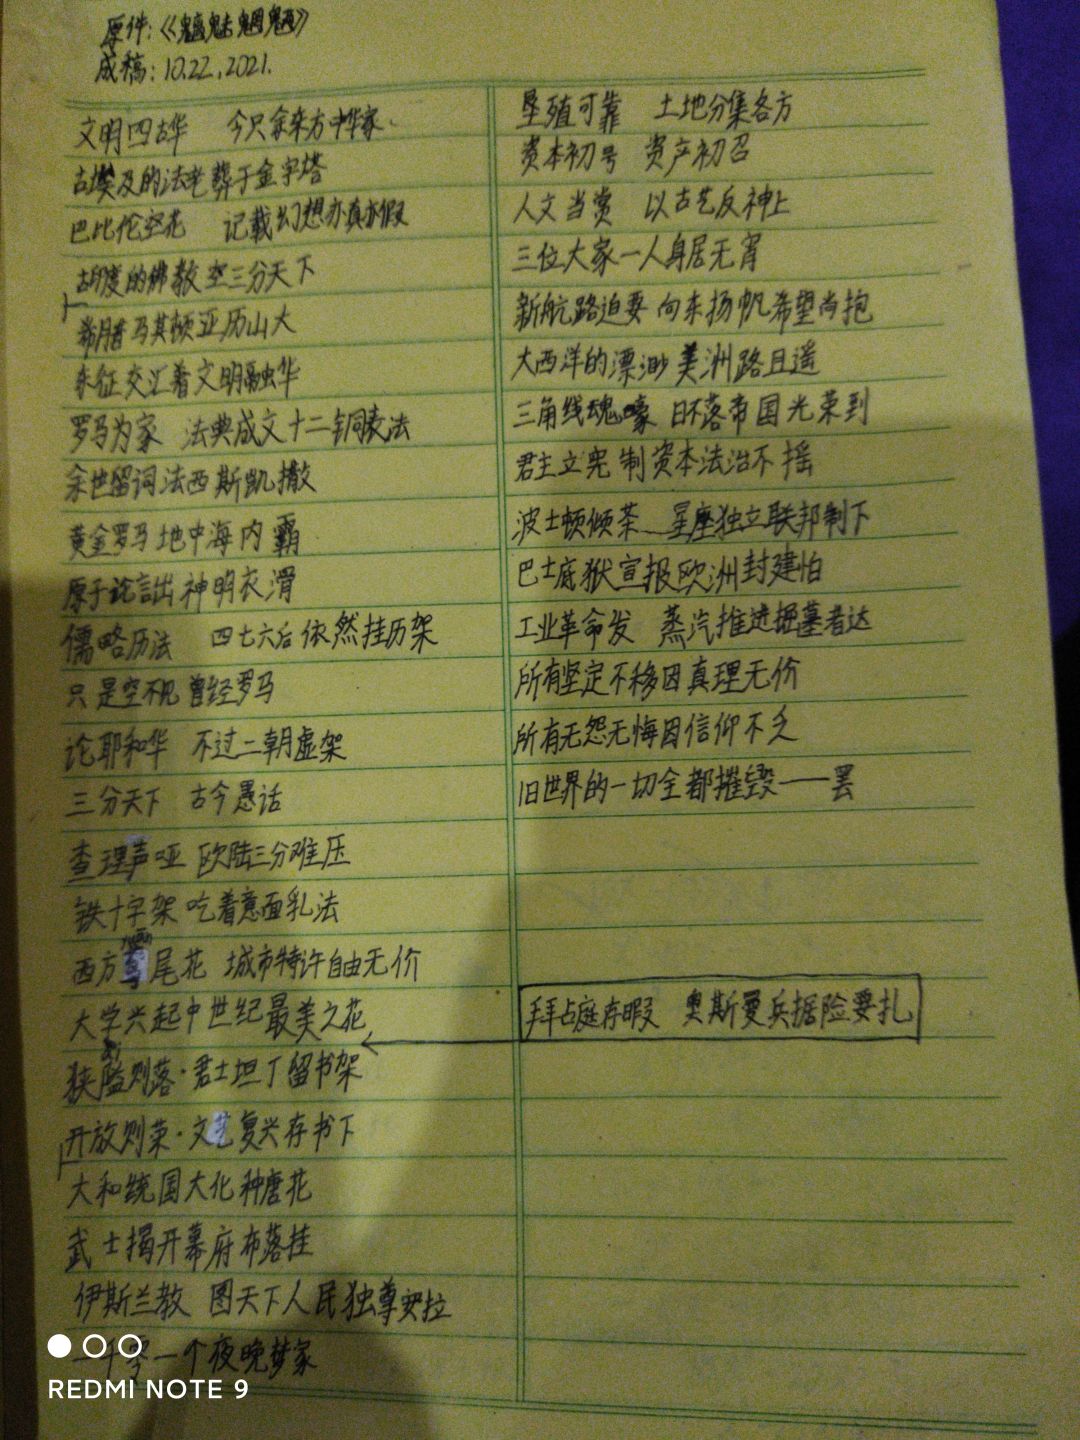 原件:《魑魅魍魉》
成稿:10.22,2021.
文明四古华 今只余东方中华家
古埃及的法老葬于金字塔
巴比伦空花 记载幻想亦真亦假
古印度的佛教空三分天下
希腊马其顿亚历山大
东征交汇着文明融华
罗马为家 法典成文十二铜表法
余世留词法西斯凯撒
黄金罗马地中海内霸
原子论言出神明衣滑
儒略历法 四七六后依然挂历架
只是空不见曾经罗马
论耶和华 不过二朝虚架
三分天下 古今愚话
查理声哑 欧陆三分难压
铁十字架吃着意面乳法
西方鸢尾花 城市特许自由无价
大学兴起中世纪最美之花
狭隘则落·君士坦丁留书架
开放则荣·文艺复兴存书下
大和统国大化种唐花
武士揭开幕府布落挂
伊斯兰教 图天下人民独尊安拉
一千零一个夜晚梦家
垦殖可靠 土地分集各方
资本初号 资产初召
人文当赏 以古艺反神上
三位大家一人身居无宵
新航路迫要向东扬帆希望尚抱
大西洋的漂渺美洲路且遥
三角线魂嚎 日不落帝国光荣到
君主立宪制资本法治不摇
波士顿倾茶 星座独立联邦制下
巴士底狱宣报欧洲封建怕
工业革命发 蒸汽推进掘墓者达
所有坚定不移因真理无价
所有无怨无悔因信仰不乏
旧世界的一切全都摧毁——罢
拜占庭存暇 奥斯曼兵据险要扎
REDMI NOTE 9